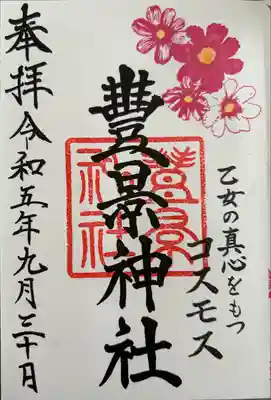 乙女の真心をもつ
コスモス
豊景神社
豊景神社
奉拝令和五年九月三十日